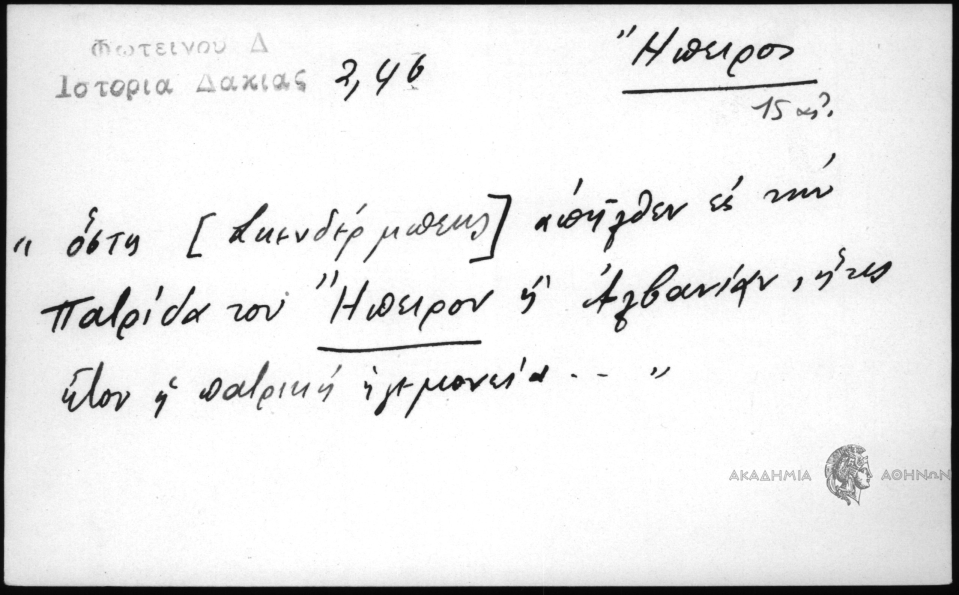 Φωτεινου Δ
Ιστορια Δακιας 2,46
Ἤπειρος
15 αἰ.
" ὅστις [Σκενδέρμπεης] ἀπῆλθεν εἰς τὴν
πατρίδα του Ἤπειρον ἢ Ἀλβανίαν, ἥτις
ἦτον ἡ πατρική ἡγεμονεία... "
ΑΚΑΔΗΜΙΑ ΑΘΗΝΩΝ